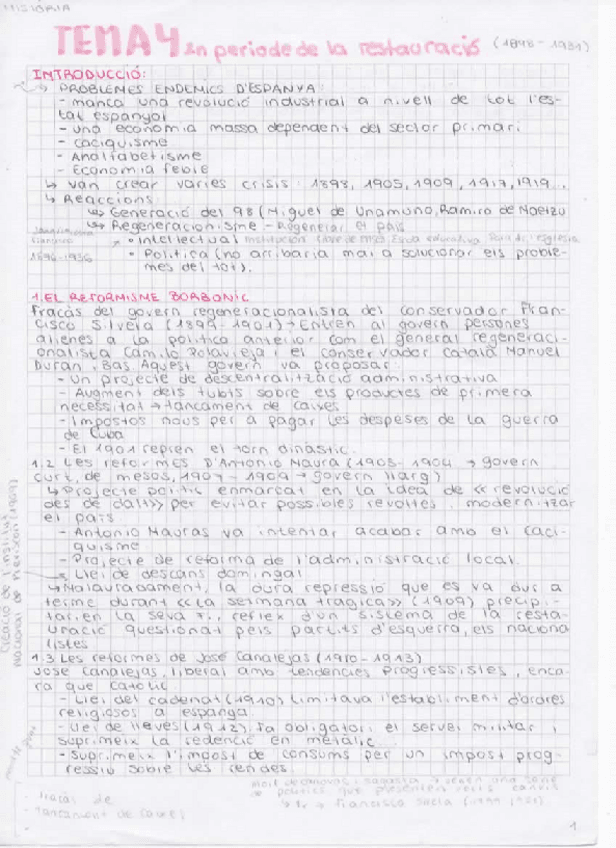 HISTÒRIA
TEMA 4 Sn periode de la restauració (1898-1931)
INTRODUCCIÓ:
PROBLEMES ENDÈMICS D'ESPANYA:
- manca una revolució industrial a nivell de tot l'es-
tat espanyol
- una economia massa dependent del sector primari
- caciquisme
- Analfabetisme
- Economia feble
↳ van crear varies crisis: 1898, 1905, 1909, 1917, 1919...
↳ Reaccions
↳ Generació del 98 (Miguel de Unamuno, Ramiro de Maetzu
↳ Regeneracionisme - Regenerar el país
• Intellectual institución
1876-1936
• Política (no arribaria mai a solucionar els proble-
mes del tot).
1. EL REFORMISME BORBONIC
Fracàs del govern regeneracionalista del conservador Fran-
cisco Silvela (1899-1901) → Entren al govern persones
alienes a la política anterior com el general regeneraci-
onalista Camilo Polavieja i el conservador català Manuel
Duran i Bas. Aquest govern va proposar:
- Un projecte de descentralització administrativa
- Augment dels tubts sobre els productes de primera
necessitat → tancament de caixes
- Impostos nous per a pagar les despeses de la guerra
de Cuba
- El 1901 reprèn el torn dinàstic.
1.2 Les reformes D'Antonio Maura (1903-1904 → govern
curt, de mesos, 1907-1909 → govern llarg)
↳ Projecte polític enmarcat en la idea de «revolució
des de dalt» per evitar possibles revoltes i modernitzar
el país
- Antonio Mauras va intentar acabar amb el caci-
quisme
- Projecte de reforma de l'administració local.
- Llei de descans domingal
Creació de l'institut
nacional de Previsión (1908)
↳ Malauradament, la dura repressió que es va dur a
terme durant «La setmana tràgica» (1909) precipi-
taren la seva fi, reflex d'un sistema de la resta-
uració questionat pels partits d'esquerra, els naciona
listes
1.3 Les reformes de José Canalejas (1910-1913)
José Canalejas, liberal amb tendències progressistes, enca-
ra que catòlic
- Llei del cadenat (1910) limitava l'establiment d'ordres
religiosos a espanya.
- Llei de lleves (1912), fa obligatori el servei militar i
suprimeix la redenció en metàlic
- Suprimeix l'impost de consums per un impost prog-
ressiu sobre les rendes.
mort de canovas i sagasta → una sèrie
de polítics que presenten canvis
↳ 1r → Francisco
- Fracàs de
- tancament de caixes)
1